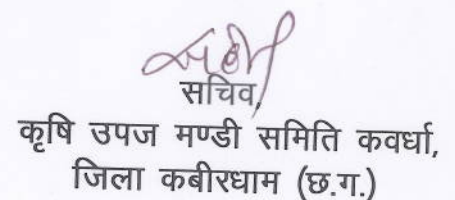 सचिव,
कृषि उपज मण्डी समिति कवर्धा,
जिला कबीरधाम (छ.ग.)